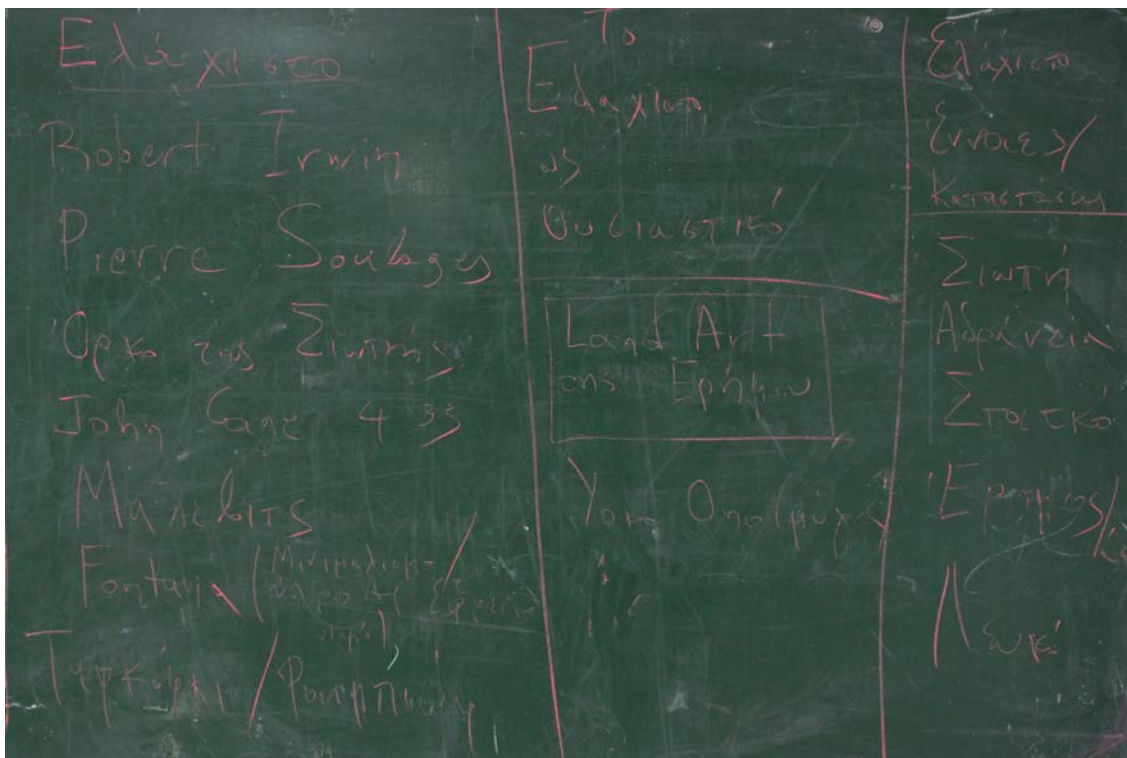 Ελάχιστο
Robert Irwin
Pierre Soulages
Όρκο της Σιωπής
John Cage 4 33
Μαλεβιτς
Fontana
Το
Ελαχιστο
ως
Ουσιαστικό
Land Art
της Ερήμου
Ελάχιστο
Έννοιες/
Καταστάσεις
Σιωπή
Αδράνεια
Στατικό
Έρημος/
Λευκό